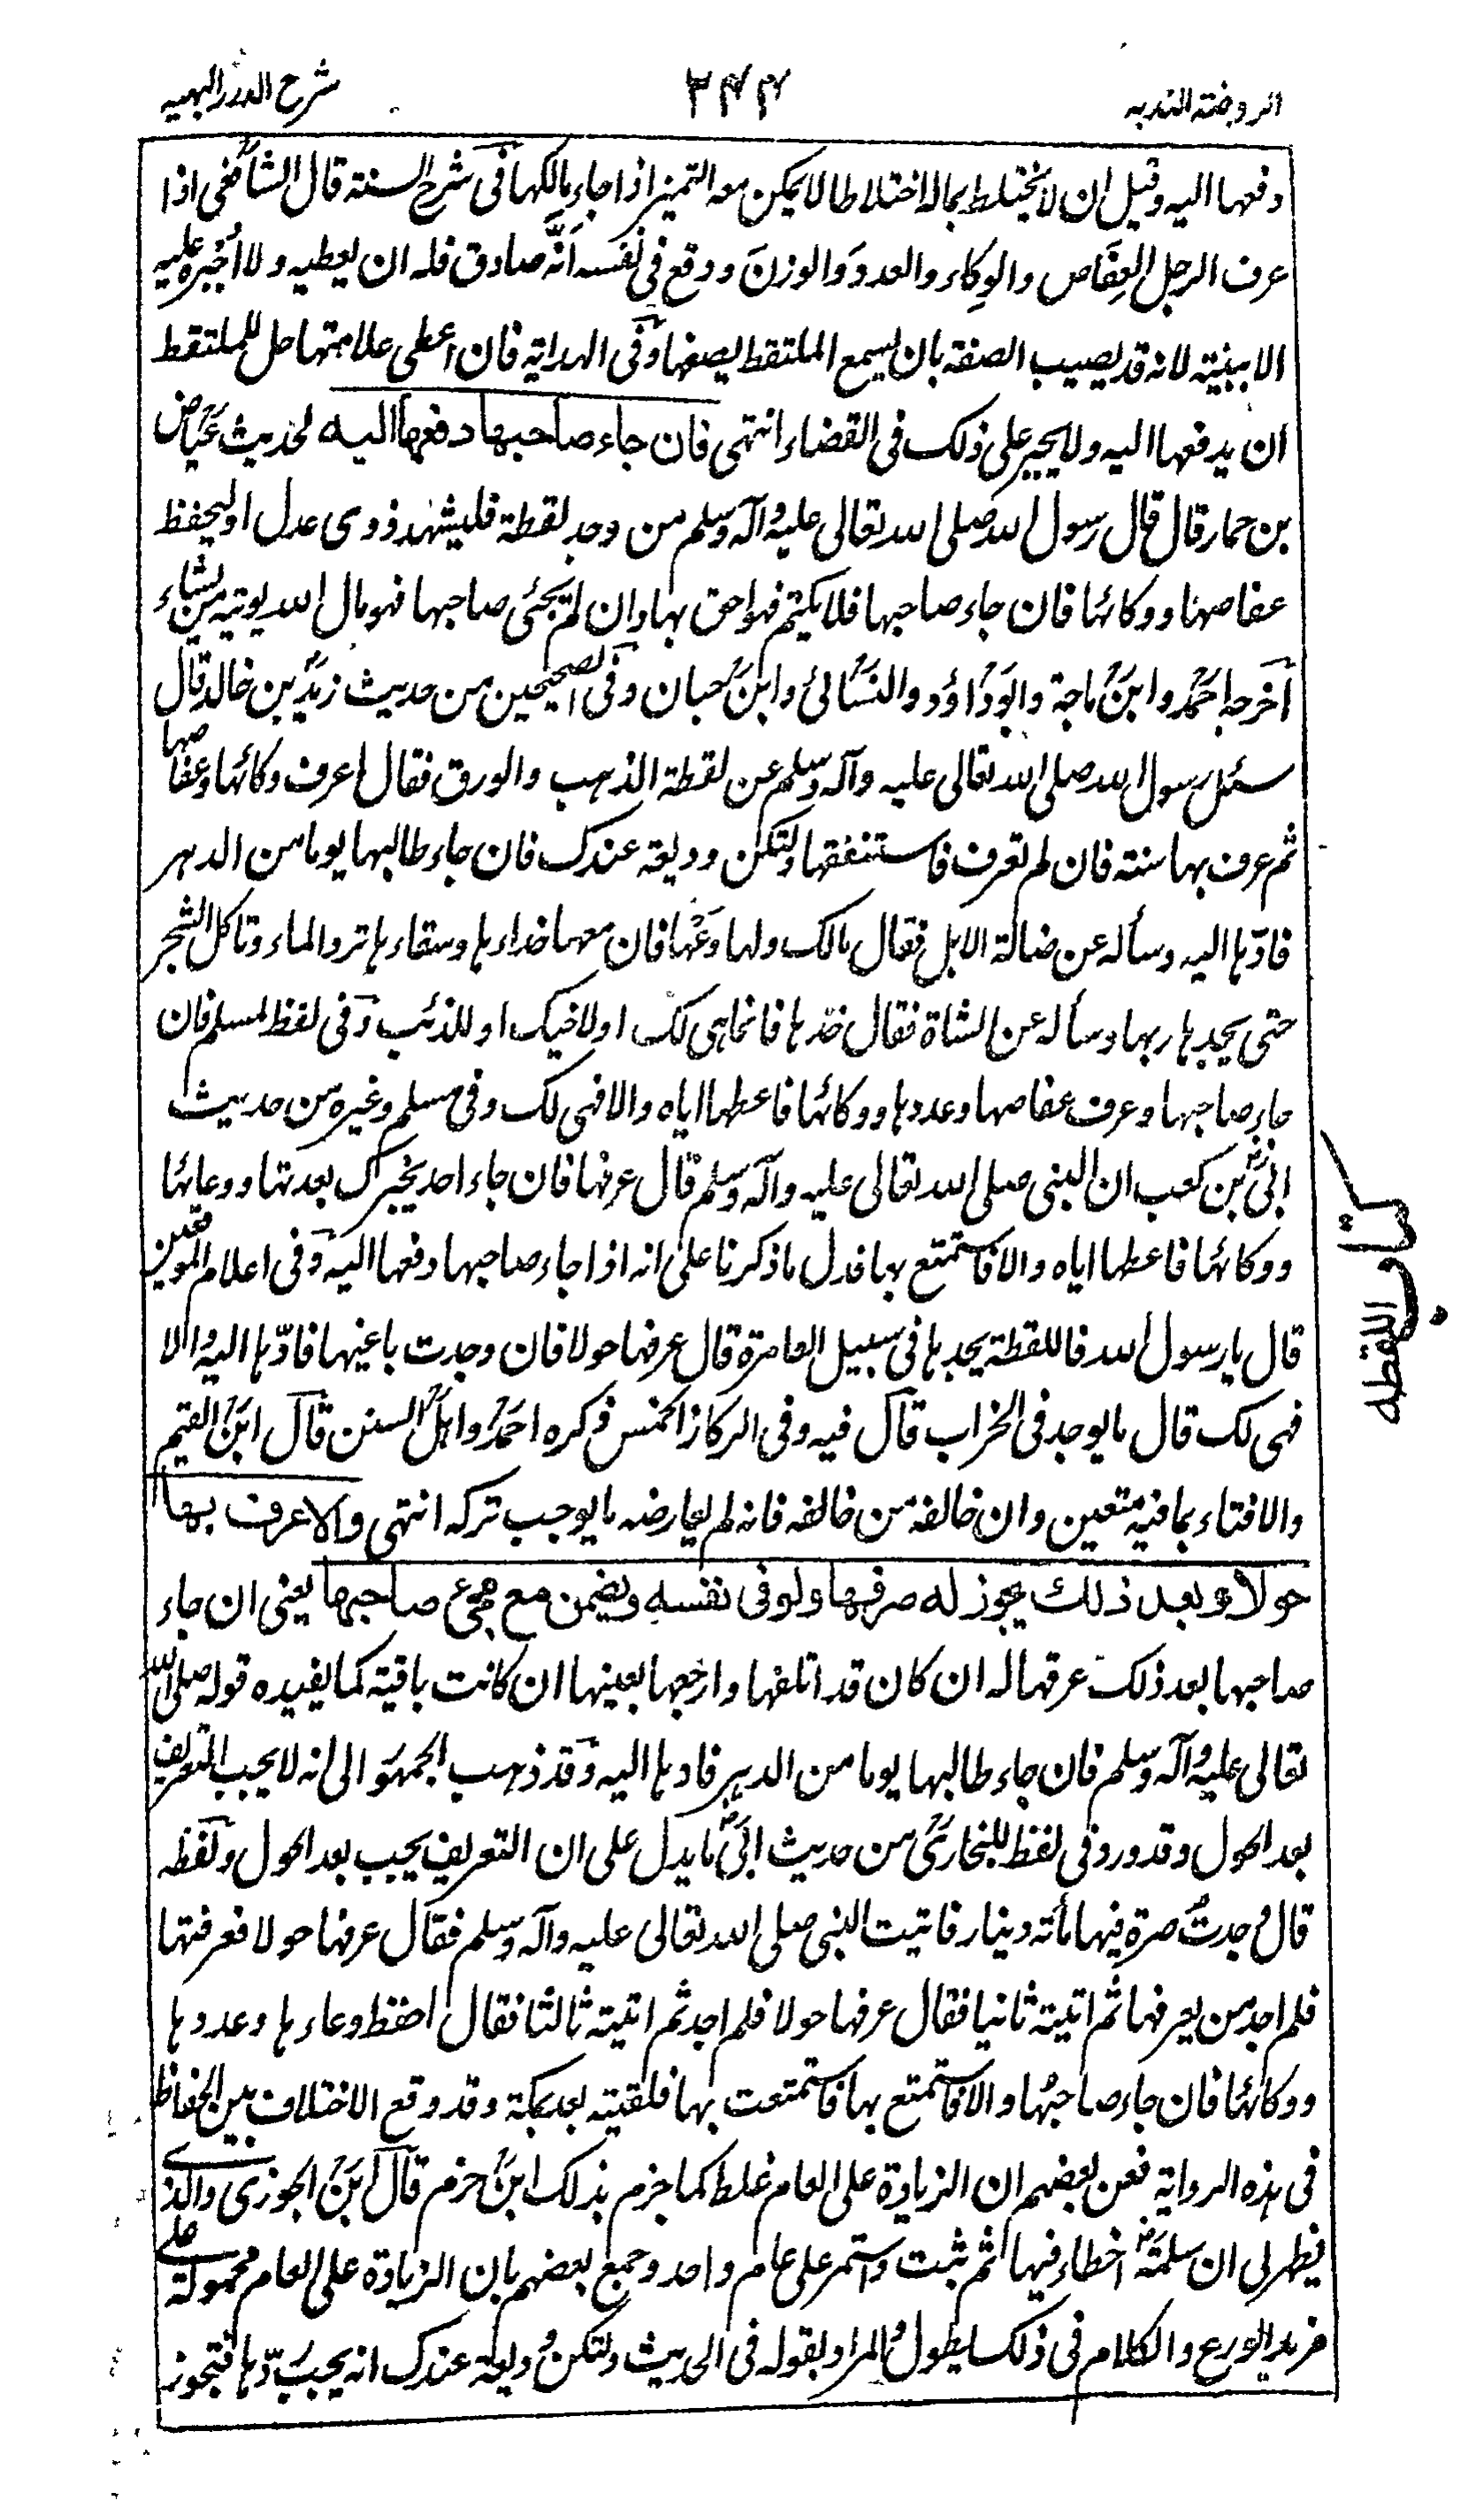 الروضة الندیه
۳۴۴
شرح الدرر البهیه
دفعها الیه وقیل ان لا یختلط بماله اختلاطا لا یمکن معه التمییز اذا جاء مالکها فی شرح السنة قال الشافعی اذا
عرف الرجل العِفَاص والوِکاء والعددَ والوزنَ ووقع فی نفسه اَنَّه صادق فله ان یعطیه ولا اُجبره علیه
الا ببینة لانه قد یصیب الصفة بان یسمع الملتقط یصفها وفی الهدایة فان اعطی علامتها حل للملتقط
ان یدفعها الیه ولا یجبر علی ذلک فی القضاء انتهی فان جاء صاحبها دفعها الیه لحدیث عیاض
بن حمار قال قال رسول الله صلی الله تعالی علیه وآله وسلم من وجد لقطة فلیشهد ذوی عدل او لیحفظ
عفاصها ووکائها فان جاء صاحبها فلا یکتم فهو احق بها وان لم یجئ صاحبها فهو مال الله یوتیه من یشاء
اخرجه احمد وابن ماجة وابوداؤد والنسائی وابن حبان وفی الصحیحین من حدیث زید بن خالد قال
سئل رسول الله صلی الله تعالی علیه وآله وسلم عن لقطة الذهب والورق فقال اعرف وکائها وعفاصها
ثم عرف بها سنة فان لم تعرف فاستنفقها ولتکن ودیعة عندک فان جاء طالبها یوما من الدهر
فادّها الیه وسأله عن ضالة الابل فقال مالک ولها دَعْها فان معها حذاءها وسقاءها ترد الماء وتاکل الشجر
حتی یجدها ربها وسأله عن الشاة فقال خذها فانما هی لک او لاخیک او للذئب وفی لفظ لمسلم فان
جاء صاحبها وعرف عفاصها وعددها ووکائها فاعطها ایاه والا فهی لک وفی مسلم وغیره من حدیث
ابیّ بن کعب ان النبی صلی الله تعالی علیه وآله وسلم قال عرفها فان جاء احد یخبرک بعدتها ووعائها
ووکائها فاعطها ایاه والا فاستمتع بها فدل ما ذکرنا علی انه اذا جاء صاحبها دفعها الیه وفی اعلام الموقعین
قال یا رسول الله فاللقطة یجدها فی سبیل العامرة قال عرفها حولا فان وجدت باغیها فادّها الیه والا
فهی لک قال ما یوجد فی الخراب قال فیه وفی الرکاز الخمس ذکره احمد واهل السنن قال ابن القیم
والافتاء بما فیه متعین وان خالفه من خالفه فانه لم یعارضه ما یوجب ترکه انتهی والا عرف بها
حولا وبعد ذلک یجوز له صرفها ولو فی نفسه ویضمن مع مجیء صاحبها یعنی ان جاء
صاحبها بعد ذلک عرفها له ان کان قد اتلفها وارجعها بعینها ان کانت باقیة کما یفیده قوله صلی الله
تعالی علیه وآله وسلم فان جاء طالبها یوما من الدهر فادها الیه وقد ذهب الجمهور الی انه لا یجب التعریف
بعد الحول وقد ورد فی لفظ للبخاری من حدیث ابیّ ما یدل علی ان التعریف یجب بعد الحول ولفظه
قال وجدتُ صرة فیها مأته دینار فاتیت النبی صلی الله تعالی علیه وآله وسلم فقال عرفها حولا فعرفتها
فلم اجد من یعرفها ثم اتیته ثانیا فقال عرفها حولا فلم اجد ثم اتیته ثالثا فقال احفظ وعاءها وعددها
ووکائها فان جاء صاحبُها والا فاستمتع بها فاستمتعت بها فلقیته بعد بمکة وقد وقع الاختلاف بین الحفاظ
فی هذه الروایة فعن بعضهم ان الزیادة علی العام غلط کما جزم بذلک ابن حزم قال ابن الجوزی والذی
یظهر لی ان سلمة اخطاء فیها ثم ثبت واستمر علی عام واحد وجمع بعضهم بان الزیادة علی العام محمولة علی
مزید الورع والکلام فی ذلک یطول والمراد بقوله فی الحدیث ولتکن ودیعة عندک انه یجب ردّها فتجوز
کتاب اللقطه